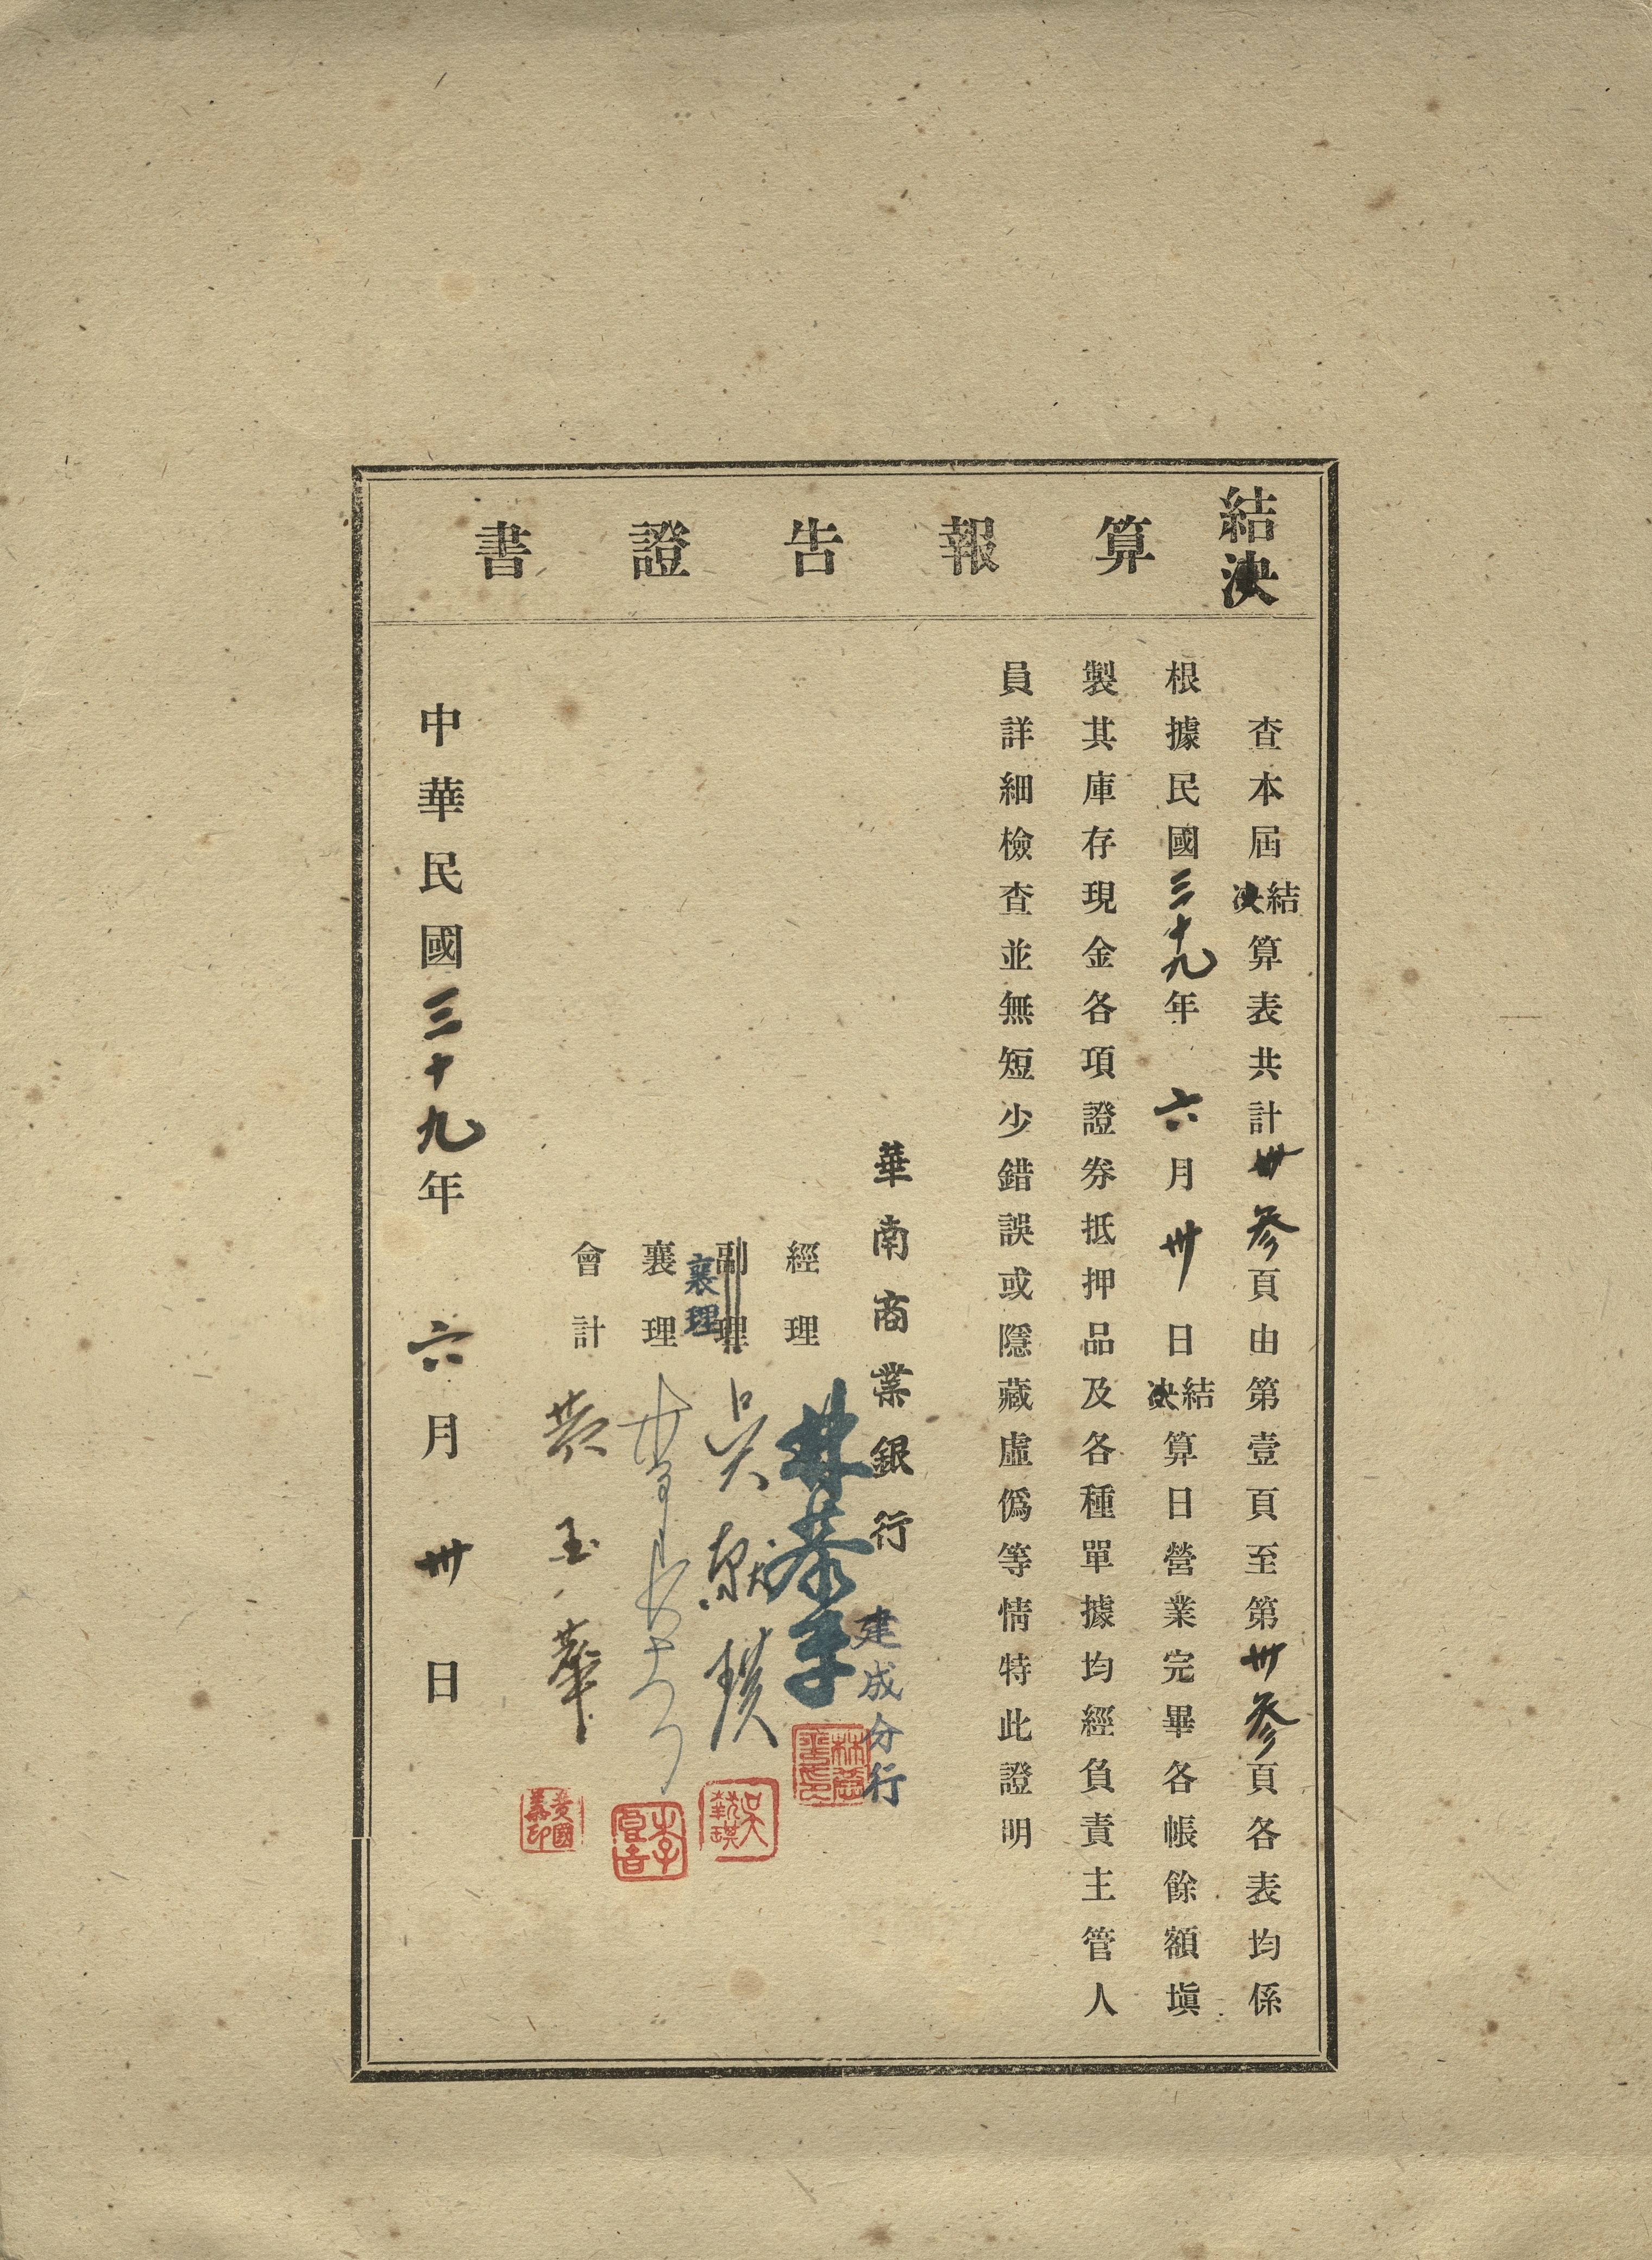 結決算報告證書
查本屆結決算表共計卅參頁由第壹頁至第卅參頁各表均係
根據民國三十九年六月卅日結決算日營業完畢各帳餘額塡
製其庫存現金各項證券抵押品及各種單據均經負責主管人
員詳細檢查並無短少錯誤或隱藏虛僞等情特此證明
華南商業銀行建成分行
經理
副理 襄理 吳
襄理
會計 黃
中華民國三十九年六月卅日